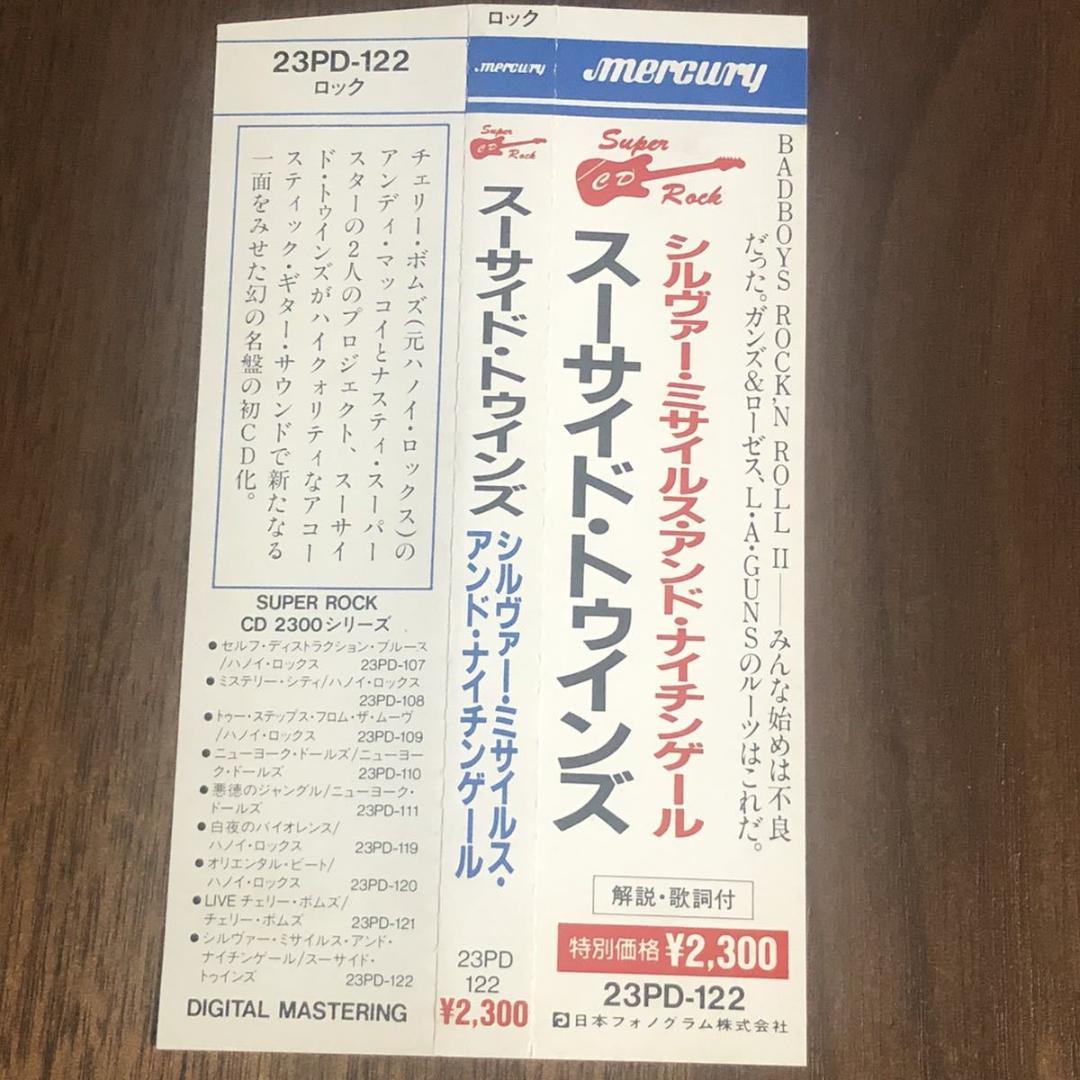 23PD-122
ロック
チェリー・ボムズ(元ハノイ・ロックス)の
アンディ・マッコイとナスティ・スーパー
スターの2人のプロジェクト、スーサイ
ド・トゥインズがハイクォリティなアコー
スティック・ギター・サウンドで新たなる
一面をみせた幻の名盤の初CD化。
SUPER ROCK
CD 2300シリーズ
●セルフ・ディストラクション・ブルース
/ハノイ・ロックス 23PD-107
●ミステリー・シティ/ハノイ・ロックス
23PD-108
●トゥー・ステップス・フロム・ザ・ムーヴ
/ハノイ・ロックス 23PD-109
●ニューヨーク・ドールズ/ニューヨー
ク・ドールズ 23PD-110
●悪徳のジャングル/ニューヨーク・
ドールズ 23PD-111
●白夜のバイオレンス/
ハノイ・ロックス 23PD-119
●オリエンタル・ビート/
ハノイ・ロックス 23PD-120
●LIVE チェリー・ボムズ/
チェリー・ボムズ 23PD-121
●シルヴァー・ミサイルス・アンド・
ナイチンゲール/スーサイド・
トゥインズ 23PD-122
DIGITAL MASTERING
ロック
mercury
Super
CD
Rock
スーサイド・トゥインズ
シルヴァー・ミサイルス・
アンド・ナイチンゲール
23PD
122
¥2,300
mercury
Super
CD
Rock
BADBOYS ROCK'N ROLL II——みんな始めは不良
だった。ガンズ&ローゼス、L・A・GUNSのルーツはこれだ。
シルヴァー・ミサイルス・アンド・ナイチンゲール
スーサイド・トゥインズ
解説・歌詞付
特別価格 ¥2,300
23PD-122
日本フォノグラム株式会社